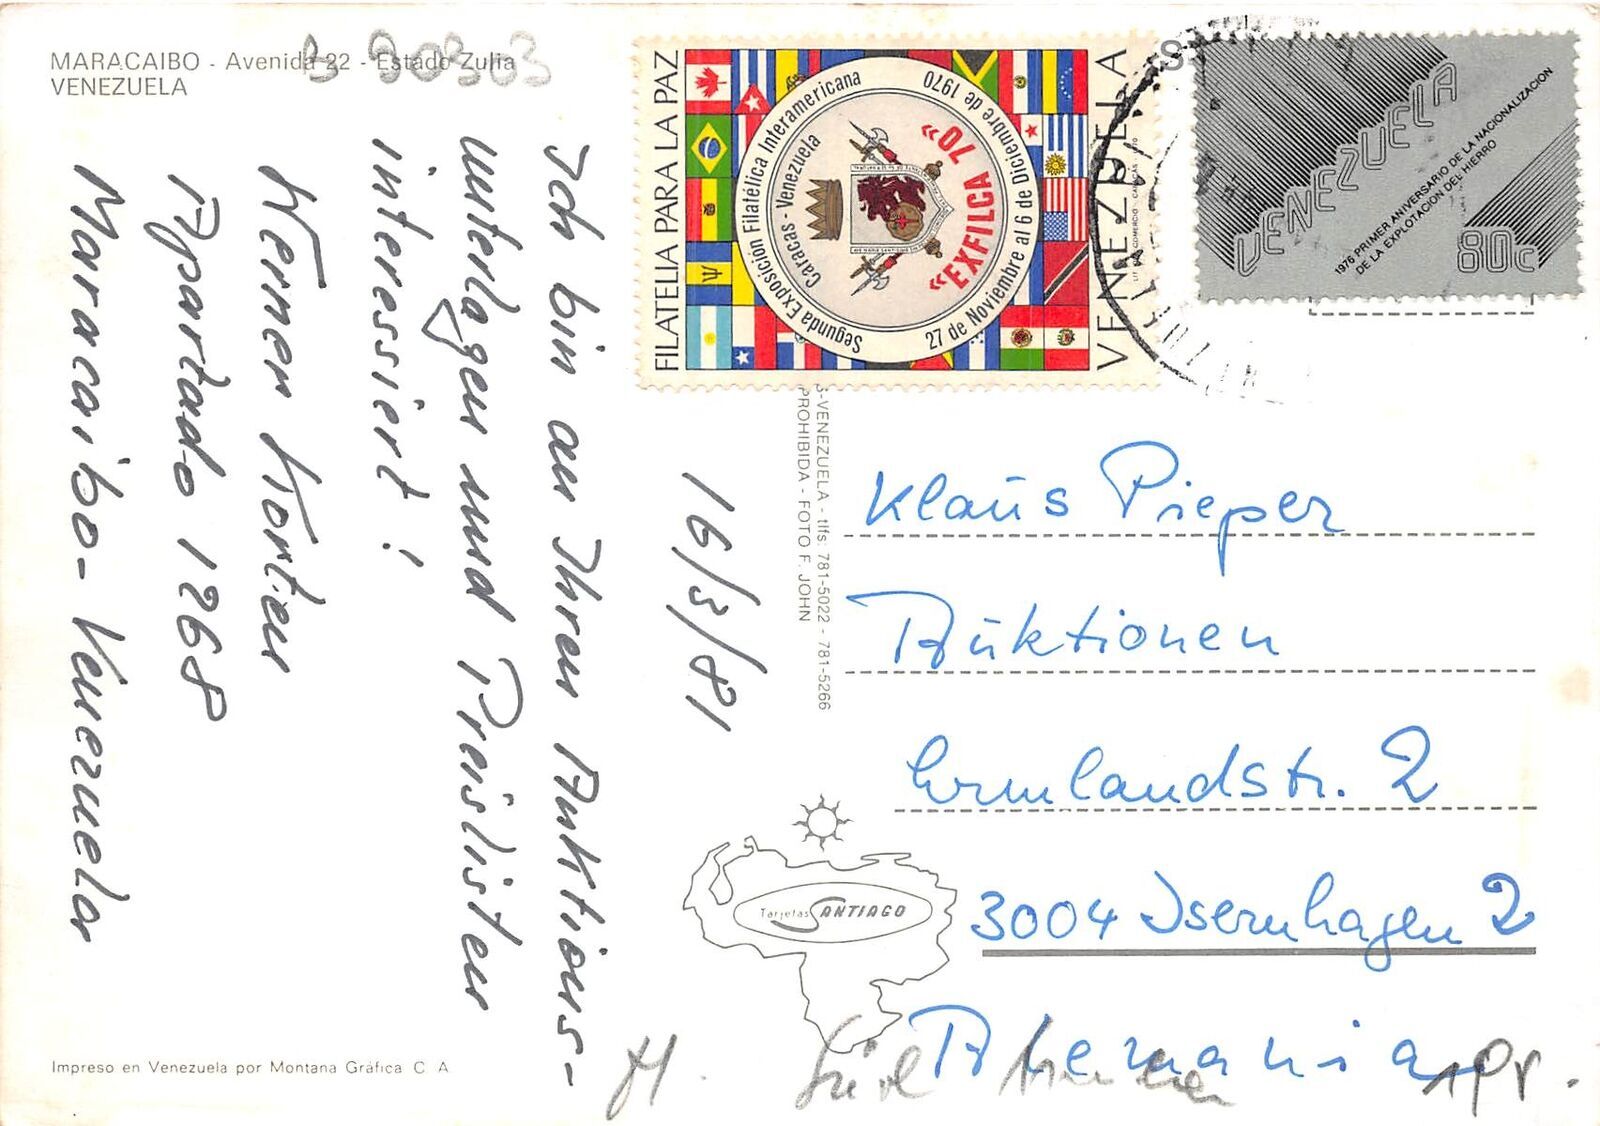 MARACAIBO - Avenida 22 - Estado Zulia
VENEZUELA
B 90303
Ich bin an Ihren Auktions-
unterlagen und Preislisten
interessiert!
Werner Korten
Apartado 1268
Maracaibo - Venezuela
16/3/81
S-VENEZUELA - tlfs: 781-5022 - 781-5266
PROHIBIDA - FOTO F. JOHN
FILATELIA PARA LA PAZ
Segunda Exposición Filatélica Interamericana
Caracas - Venezuela
"EXFILCA 70"
27 de Noviembre al 6 de Diciembre de 1970
VENEZUELA
VENEZUELA
1976 PRIMER ANIVERSARIO DE LA NACIONALIZACION
DE LA EXPLOTACION DEL HIERRO
80c
Klaus Pieper
Auktionen
Ermlandstr. 2
3004 Isernhagen 2
Alemania
Tarjetas SANTIAGO
Impreso en Venezuela por Montana Gráfica C. A